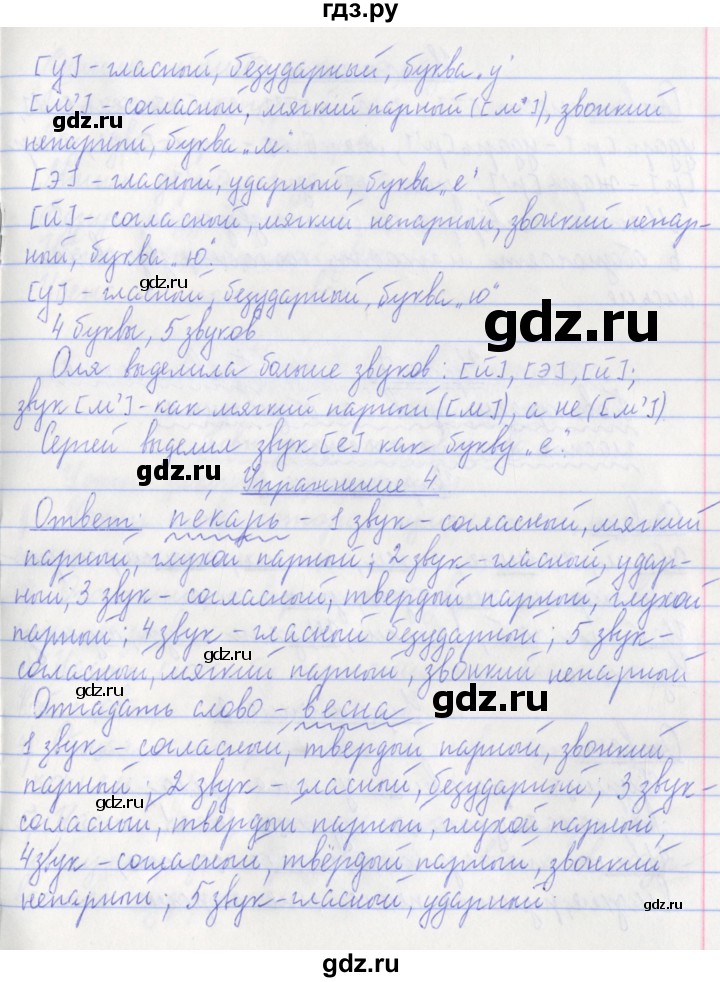 гдз.ру
[у] - гласный, безударный, буква „у"
[м'] - согласный, мягкий парный ([м*]), звонкий
gdz.ru
непарный, буква „м".
[э] - гласный, ударный, буква „е"
[й] - согласный, мягкий непарный, звонкий непар-
ный, буква „ю".
gdz.ru
[у] - гласный, безударный, буква „ю"
gdz.ru
4 буквы, 5 звуков
gdz.ru
Оля выделила больше звуков: [й], [э], [й];
звук [м'] - как мягкий парный ([м]), а не ([м'])
Сергей выделил звук [е] как букву „е".
gdz.ru
Упражнение 4
Ответ: пекарь - 1 звук - согласный, мягкий
gdz.ru
парный, глухой парный; 2 звук - гласный, удар-
ный; 3 звук - согласный, твердый парный, глухой
парный; 4 звук - гласный безударный; 5 звук -
gdz.ru
согласный, мягкий парный, звонкий непарный
gdz.ru
Отгадать слово - весна
gdz.ru
1 звук - согласный, твёрдый парный, звонкий
парный; 2 звук - гласный, безударный; 3 звук -
gdz.ru
согласный, твёрдый парный, глухой парный,
4 звук - согласный, твёрдый парный, звонкий
непарный; 5 звук - гласный, ударный
gdz.ru
gdz.ru